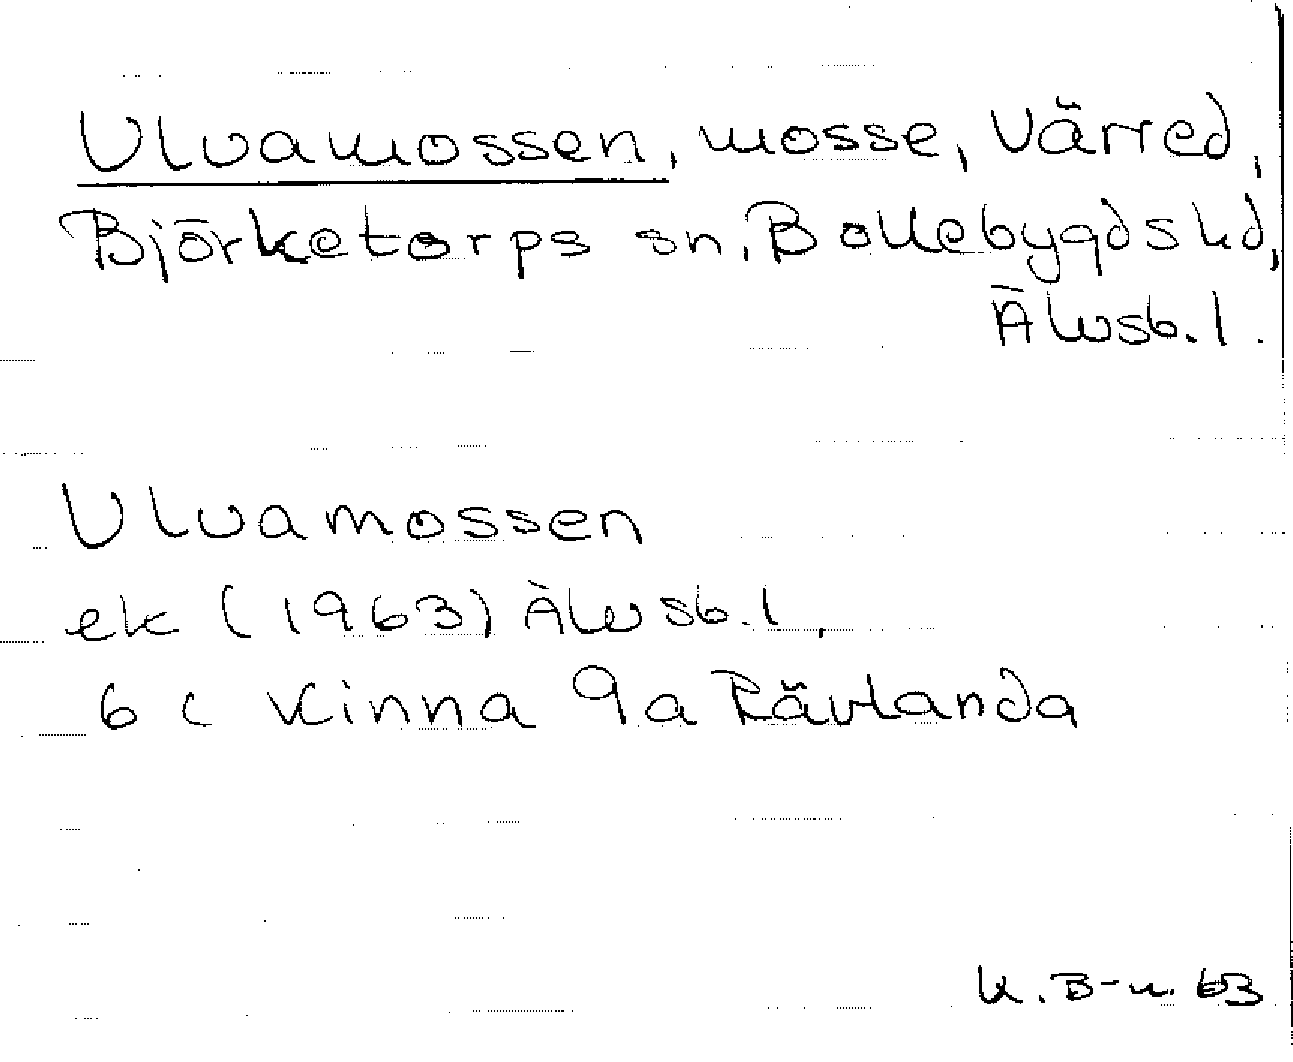 Ulvamossen, mosse, Värred,
Björketorps sn, Bollebygds hd,
Älvsb. l.
Ulvamossen
ek (1963) Älvsb. l.,
6 c Kinna 9a Rävlanda
K. B-n. 63